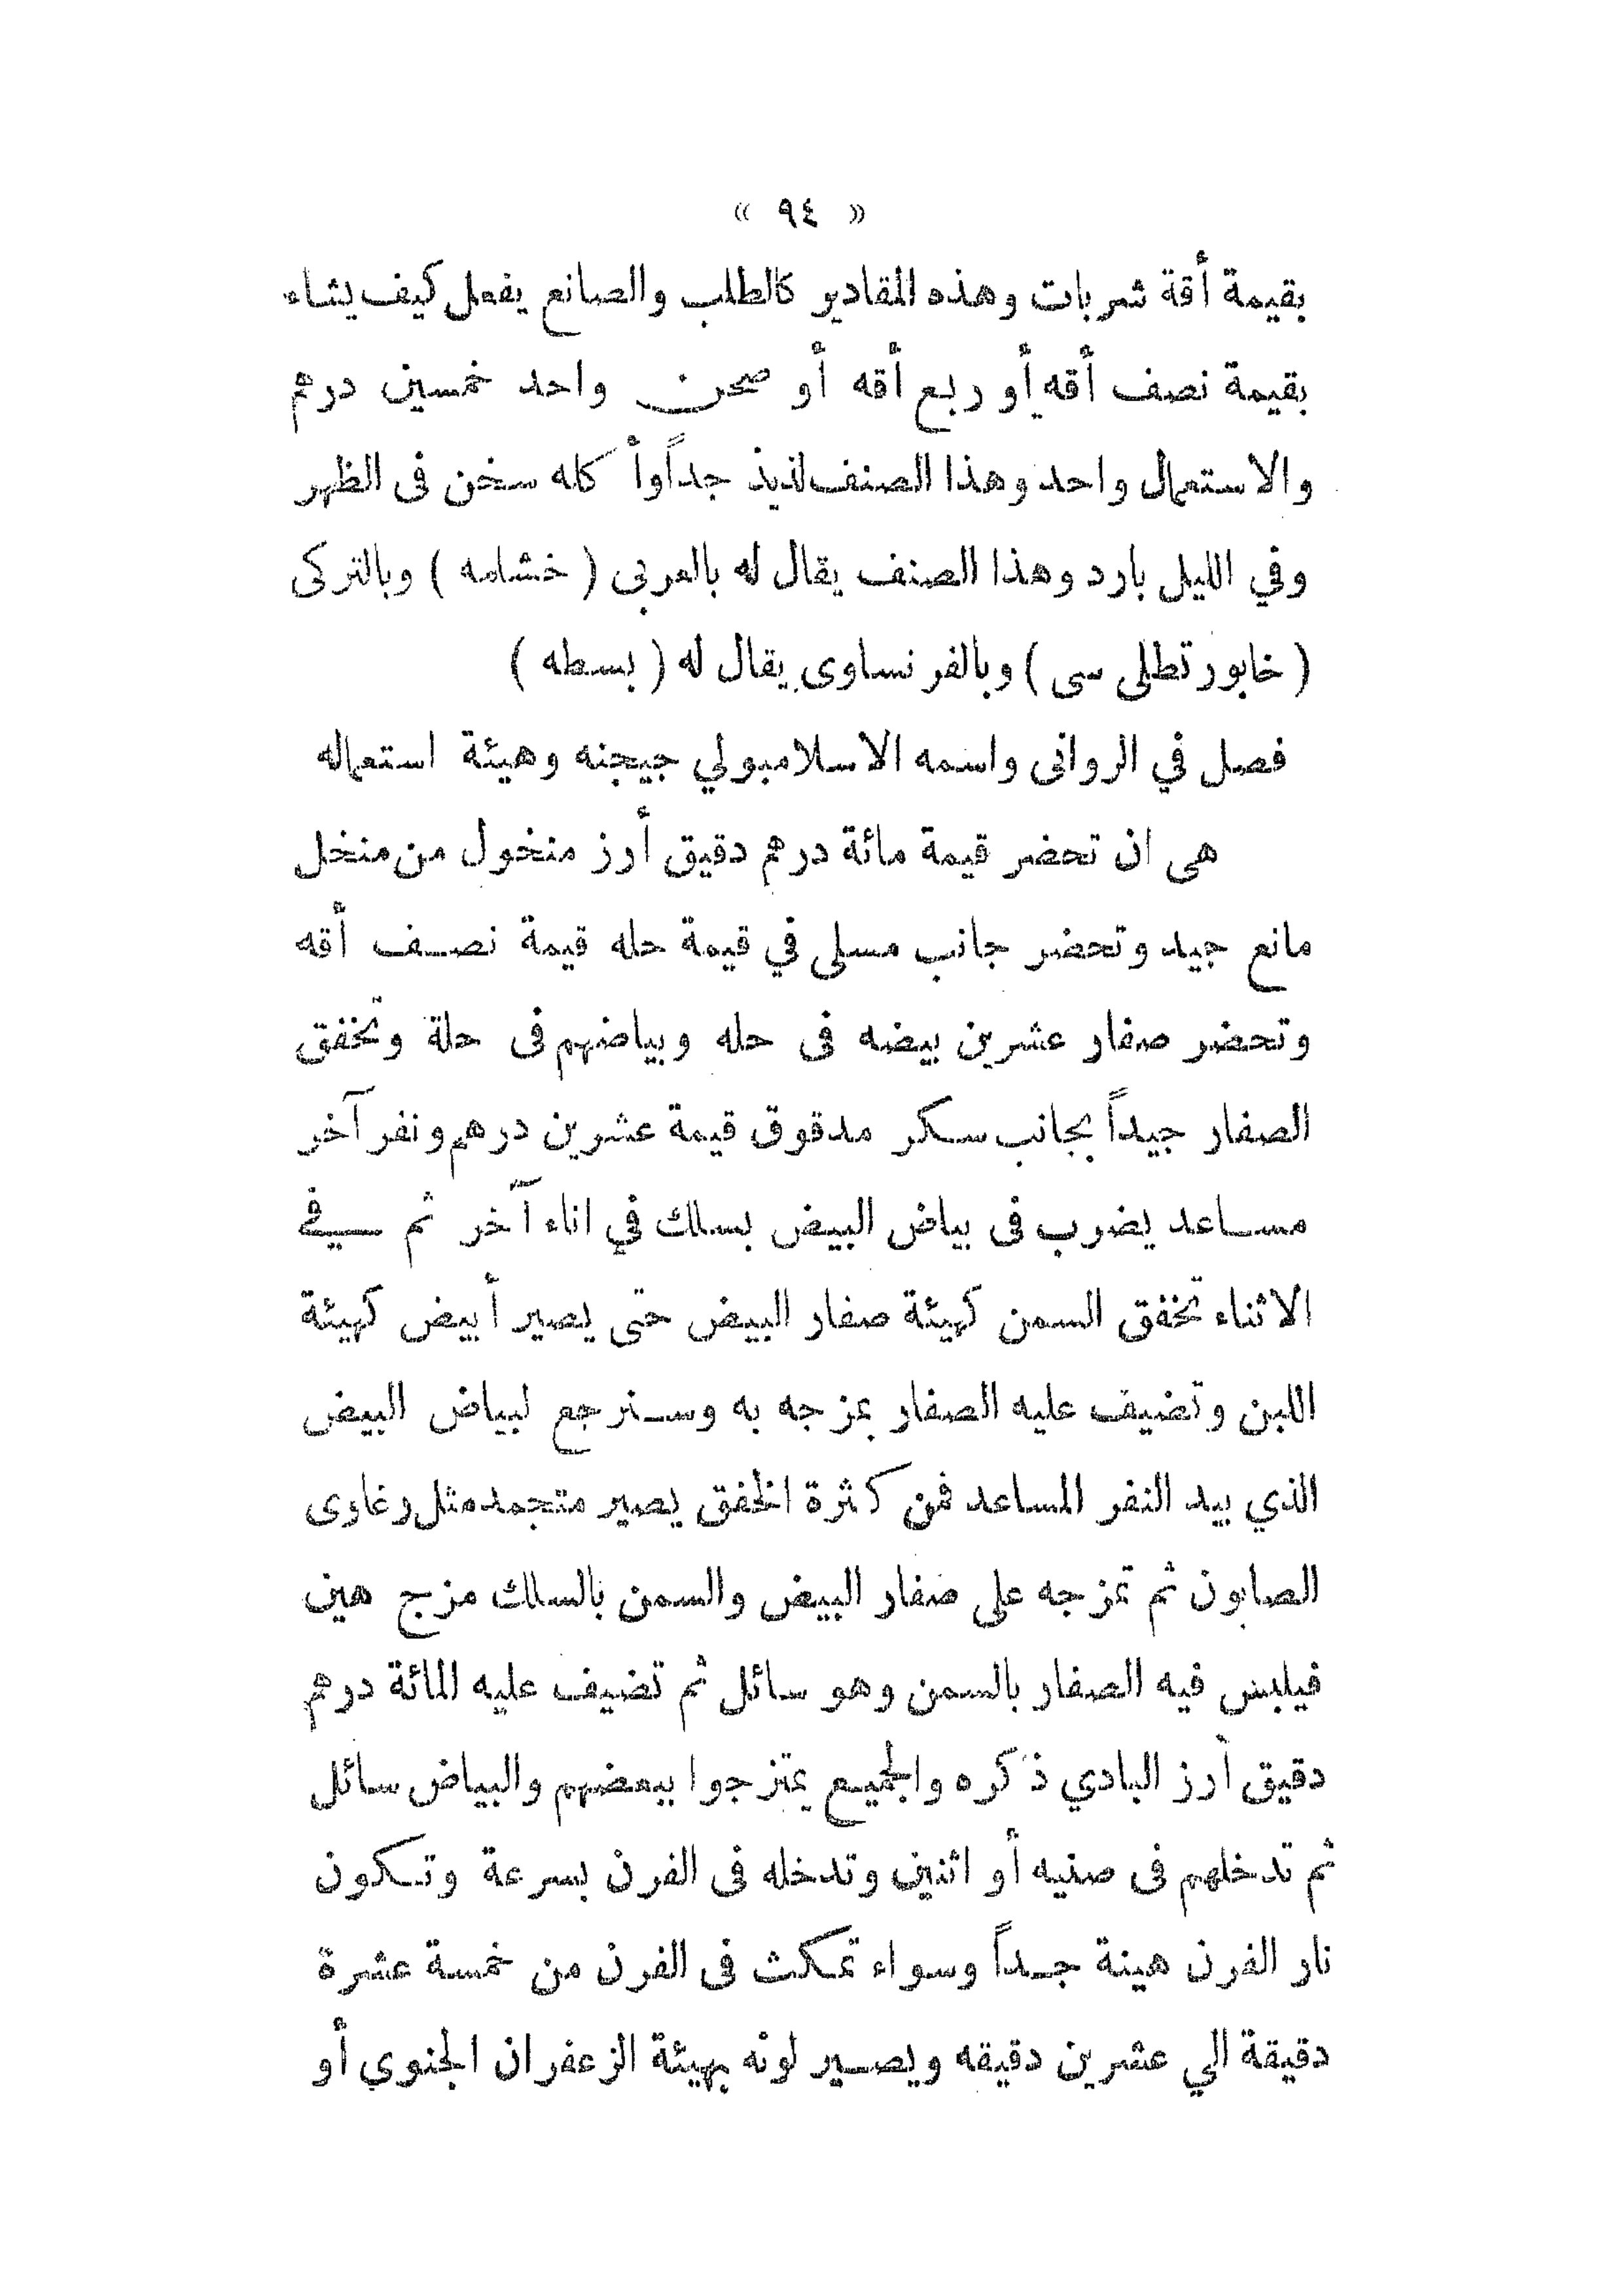 « ٩٤ »
بقيمة أقة شربات وهذه المقادير كالطلب والصانع يفعل كيف يشاء
بقيمة نصف أقه أو ربع أقه أو صحن واحد خمسين درهم
والاستعمال واحد وهذا الصنف لذيذ جداً وأكله سخن فى الظهر
وفي الليل بارد وهذا الصنف يقال له بالعربى ( خشامه ) وبالتركى
( خابور تطلى سى ) وبالفرنساوى يقال له ( بسطه )
فصل في الروانى واسمه الاسلامبولي جيجنه وهيئة استعماله
هى ان تحضر قيمة مائة درهم دقيق أرز منخول من منخل
مانع جيد وتحضر جانب مسلى في قيمة حله قيمة نصف أقه
وتحضر صفار عشرين بيضه فى حله وبياضهم فى حلة وتخفق
الصفار جيداً بجانب سكر مدقوق قيمة عشرين درهم ونفر آخر
مساعد يضرب فى بياض البيض بسلك في اناء آخر ثم في
الاثناء تخفق السمن كهيئة صفار البيض حتى يصير أبيض كهيئة
اللبن وتضيف عليه الصفار بمزجه به وسنرجع لبياض البيض
الذي بيد النفر المساعد فمن كثرة الخفق يصير متجمد مثل رغاوى
الصابون ثم تمزجه على صفار البيض والسمن بالسلك مزج هين
فيلبس فيه الصفار بالسمن وهو سائل ثم تضيف عليه المائة درهم
دقيق أرز البادي ذكره والجميع يمتزجوا ببعضهم والبياض سائل
ثم تدخلهم فى صنيه أو اثنين وتدخله فى الفرن بسرعة وتكون
نار الفرن هينة جداً وسواء تمكث فى الفرن من خمسة عشرة
دقيقة الي عشرين دقيقه ويصير لونه بهيئة الزعفران الجنوي أو